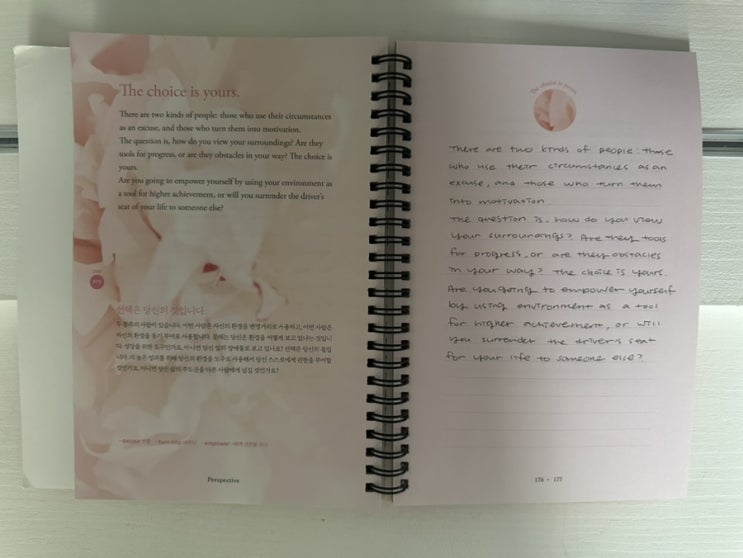 The choice is yours.
There are two kinds of people: those who use their circumstances
as an excuse, and those who turn them into motivation.
The question is, how do you view your surroundings? Are they
tools for progress, or are they obstacles in your way? The choice is
yours.
Are you going to empower yourself by using your environment as
a tool for higher achievement, or will you surrender the driver's
seat of your life to someone else?
선택은 당신의 것입니다.
두 종류의 사람이 있습니다. 어떤 사람은 자신의 환경을 변명거리로 사용하고, 어떤 사람은
자신의 환경을 동기 부여로 사용합니다. 문제는 당신은 환경을 어떻게 보고 있냐는 것입니
다. 성장을 위한 도구인가요, 아니면 당신 앞의 장애물로 보고 있나요? 선택은 당신의 몫입
니다. 더 높은 성과를 위해 당신의 환경을 도구로 사용해서 당신 스스로에게 권한을 부여할
것인가요, 아니면 당신 삶의 주도권을 다른 사람에게 넘길 것인가요?
excuse 변명 turn into empower
Perspective
The choice is yours.
There are two kinds of people: those
who use their circumstances as an
excuse, and those who turn them
into motivation.
The question is, how do you view
your surroundings? Are they tools
for progress, or are they obstacles
in your way? The choice is yours.
Are you going to empower yourself
by using environment as a tool
for higher achievement, or will
you surrender the driver's seat
for your life to someone else?
176 • 177